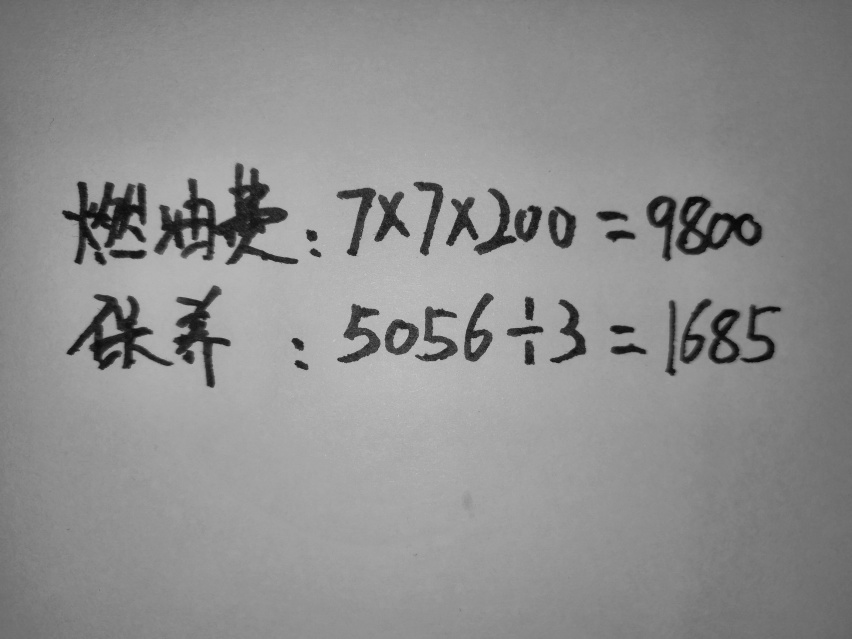 燃油费：7×7×200=9800
保养：5056÷3=1685